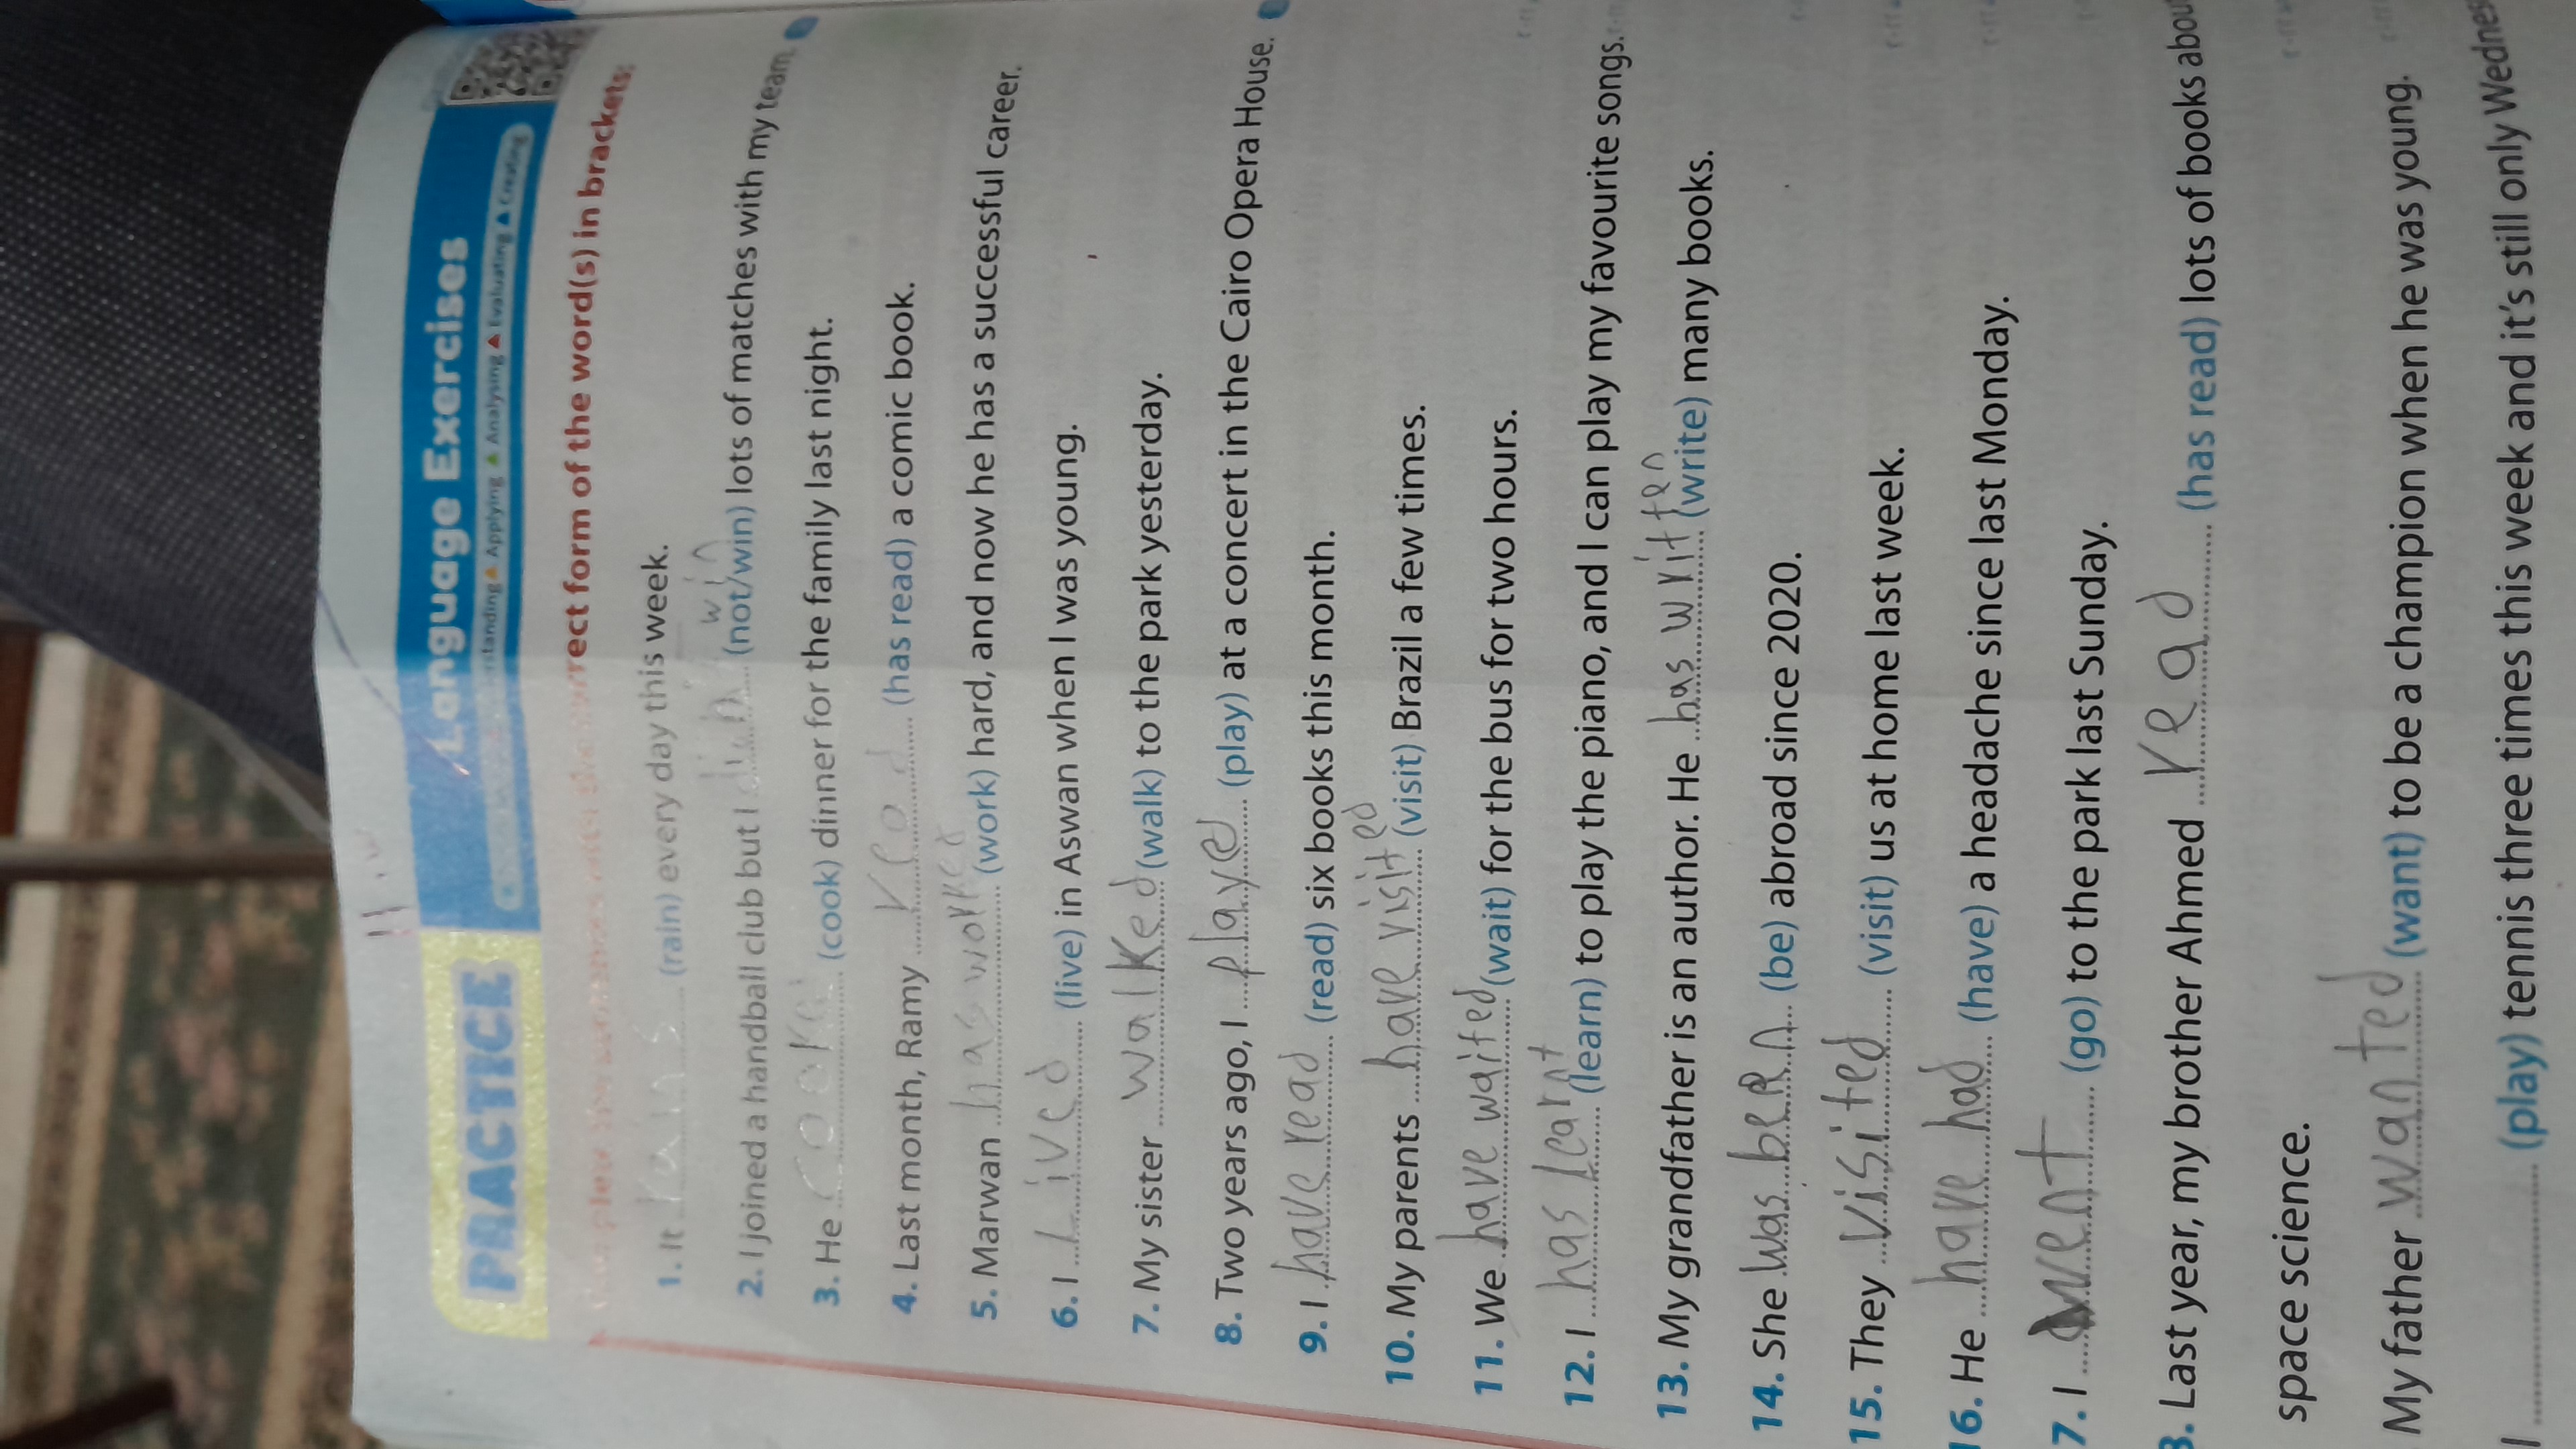 H.w
PRACTICE
Language Exercises
standing Applying Analysing Evaluating Creating
Complete the sentences with the correct form of the word(s) in brackets:
1. It rains (rain) every day this week.
win
2. I joined a handball club but I (not/win) lots of matches with my team.
3. He cooked (cook) dinner for the family last night.
4. Last month, Ramy read (has read) a comic book.
5. Marwan has worked (work) hard, and now he has a successful career.
6. I Lived (live) in Aswan when I was young.
7. My sister walked (walk) to the park yesterday.
8. Two years ago, I played (play) at a concert in the Cairo Opera House.
9. I have read (read) six books this month.
10. My parents have visited (visit) Brazil a few times.
11. We have waited (wait) for the bus for two hours.
12. I has learnt (learn) to play the piano, and I can play my favourite songs.
13. My grandfather is an author. He has written (write) many books.
14. She was been (be) abroad since 2020.
15. They visited (visit) us at home last week.
16. He have had (have) a headache since last Monday.
7. I went (go) to the park last Sunday.
8. Last year, my brother Ahmed read (has read) lots of books about
space science.
My father wanted (want) to be a champion when he was young.
I (play) tennis three times this week and it's still only Wednes